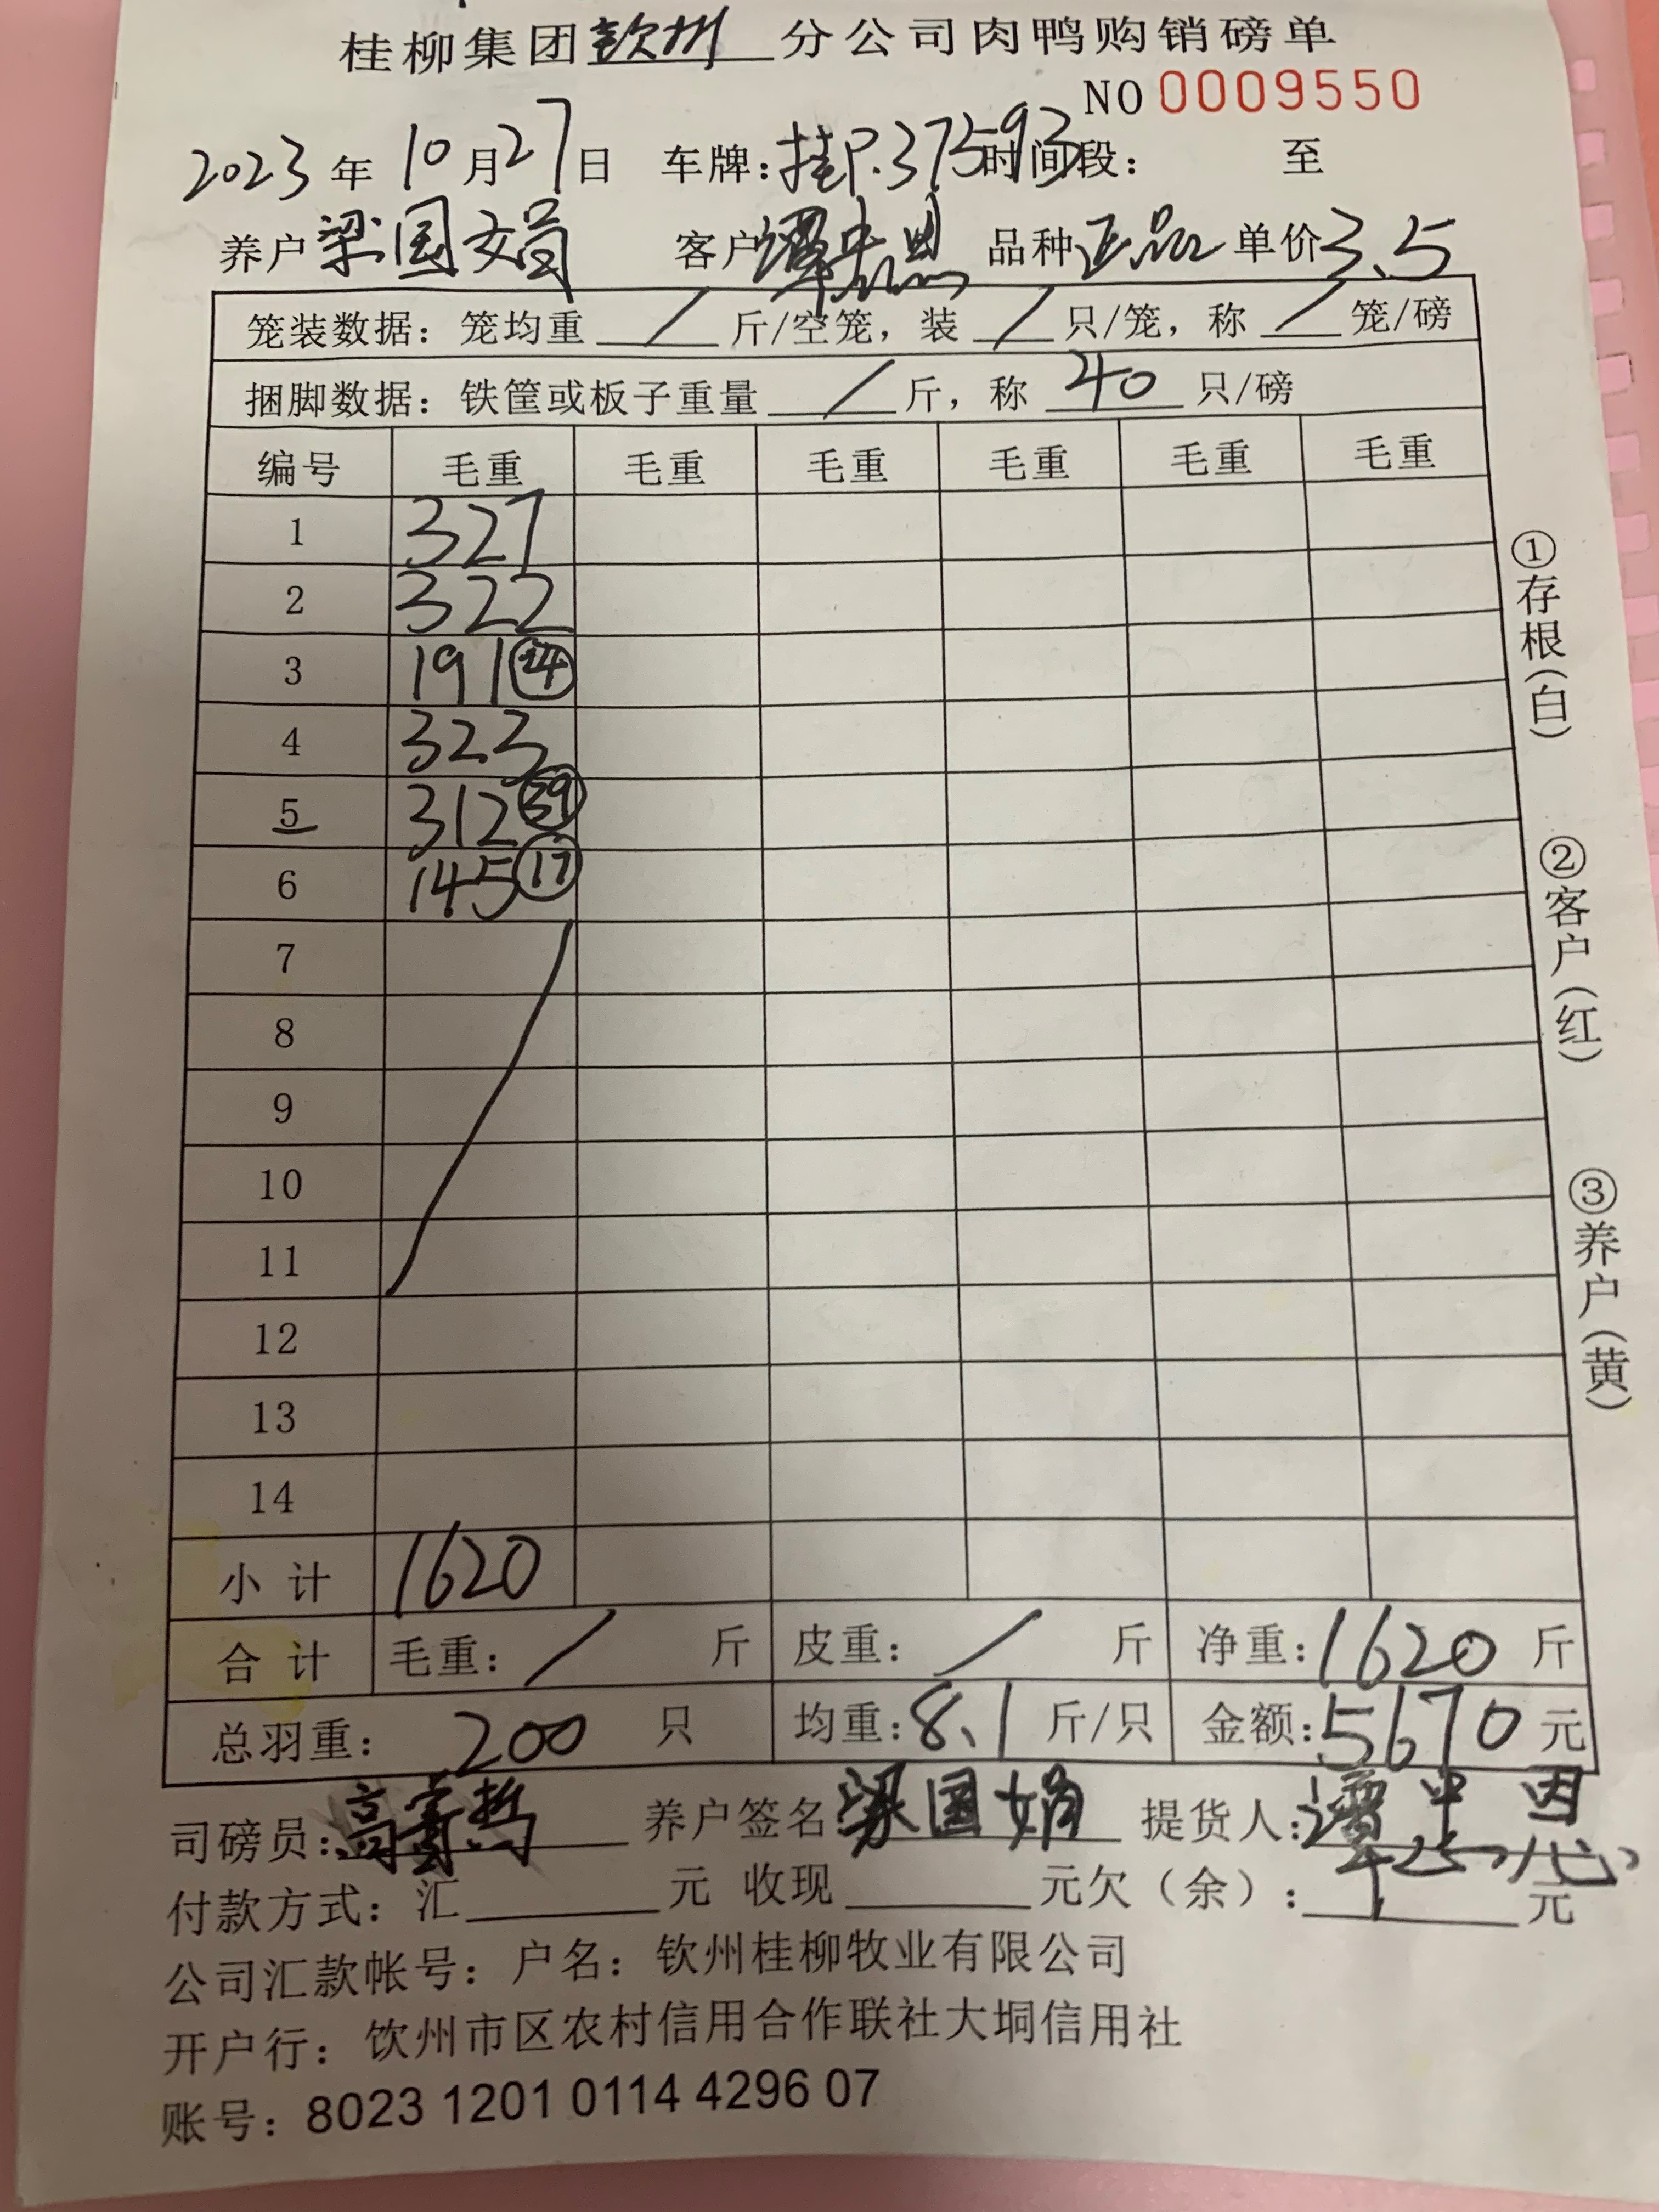 桂柳集团钦州分公司肉鸭购销磅单
NO 0009550
2023年10月27日 车牌:桂P.37593时间段: 至
养户梁国娟 客户谭忠恩 品种正品 单价3.5
笼装数据: 笼均重 / 斤/空笼, 装 / 只/笼, 称 / 笼/磅
捆脚数据: 铁筐或板子重量 / 斤, 称 40 只/磅
编号 毛重 毛重 毛重 毛重 毛重 毛重
1 327
2 322
3 191 24
4 323
5 312 39
6 145 17
7
8
9
10
11
12
13
14
小计 1620
合计 毛重: / 斤 皮重: / 斤 净重:1620 斤
总羽重: 200 只 均重:8.1 斤/只 金额:5670元
司磅员: 高 养户签名:梁国娟 提货人:谭忠恩
付款方式: 汇 元 收现 元欠(余): 元
公司汇款帐号: 户名: 钦州桂柳牧业有限公司
开户行: 钦州市区农村信用合作联社大垌信用社
账号: 8023 1201 0114 4296 07
①存根(白)
②客户(红)
③养户(黄)